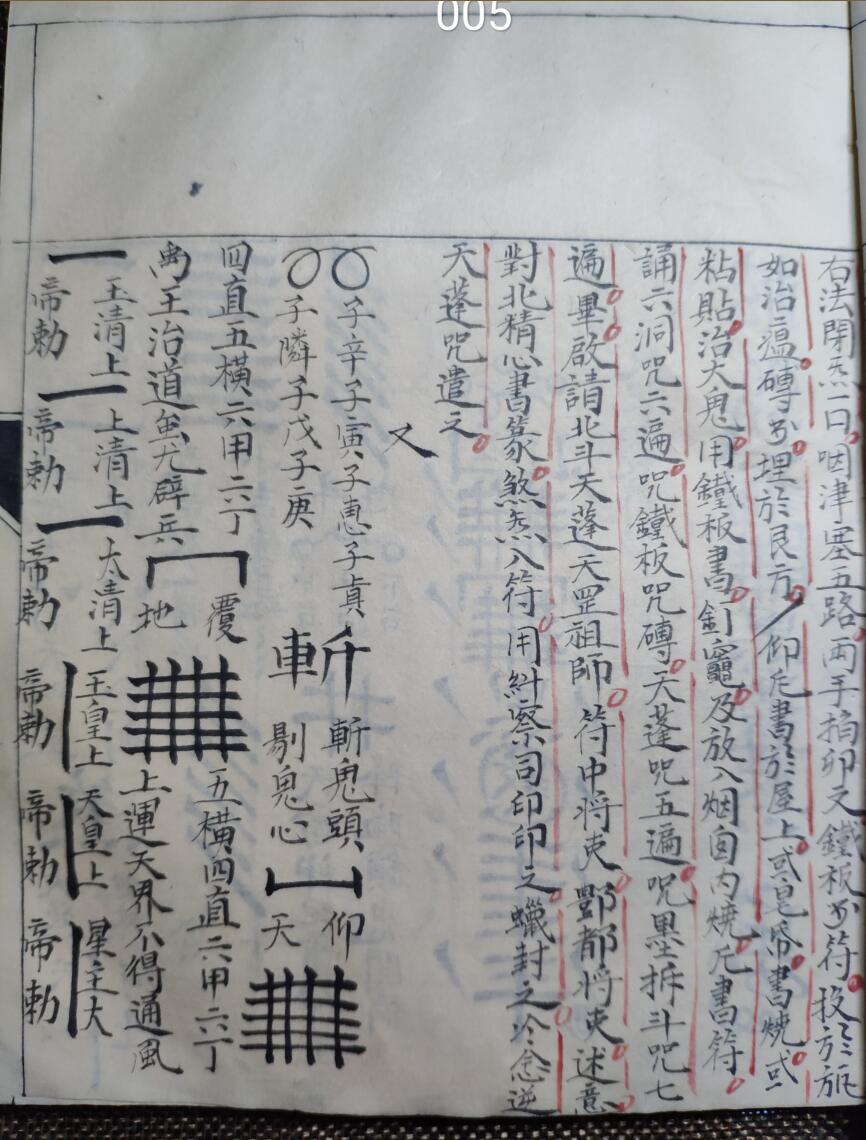 005
右法閉炁一口咽津塞五路兩手掐卯文鐵板分符投於瓶
如治瘟磚分埋於艮方仰瓦書於屋上或皂帋書燒或
粘貼治大鬼用鐵板書釘竈及放入烟囱内燒瓦書符
誦六洞咒六遍咒鐵板咒磚天蓬咒五遍咒墨拆斗咒七
遍畢啟請北斗天蓬天罡祖師符中将吏酆都将吏述意
對北精心書篆煞炁入符用糾察司印印之蠟封之冷念逆
天蓬咒遣之
又
子辛子寅子惠子貞 斬鬼頭 仰
子隣子戊子庚 剔鬼心 天
四直五橫六甲六丁 覆 五橫四直六甲六丁
禹王治道蚩尤辟兵 地 上運天界不得通風
玉清上 上清上 太清上 玉皇上 天皇上 星主大
帝勅 帝勅 帝勅 帝勅 帝勅 帝勅